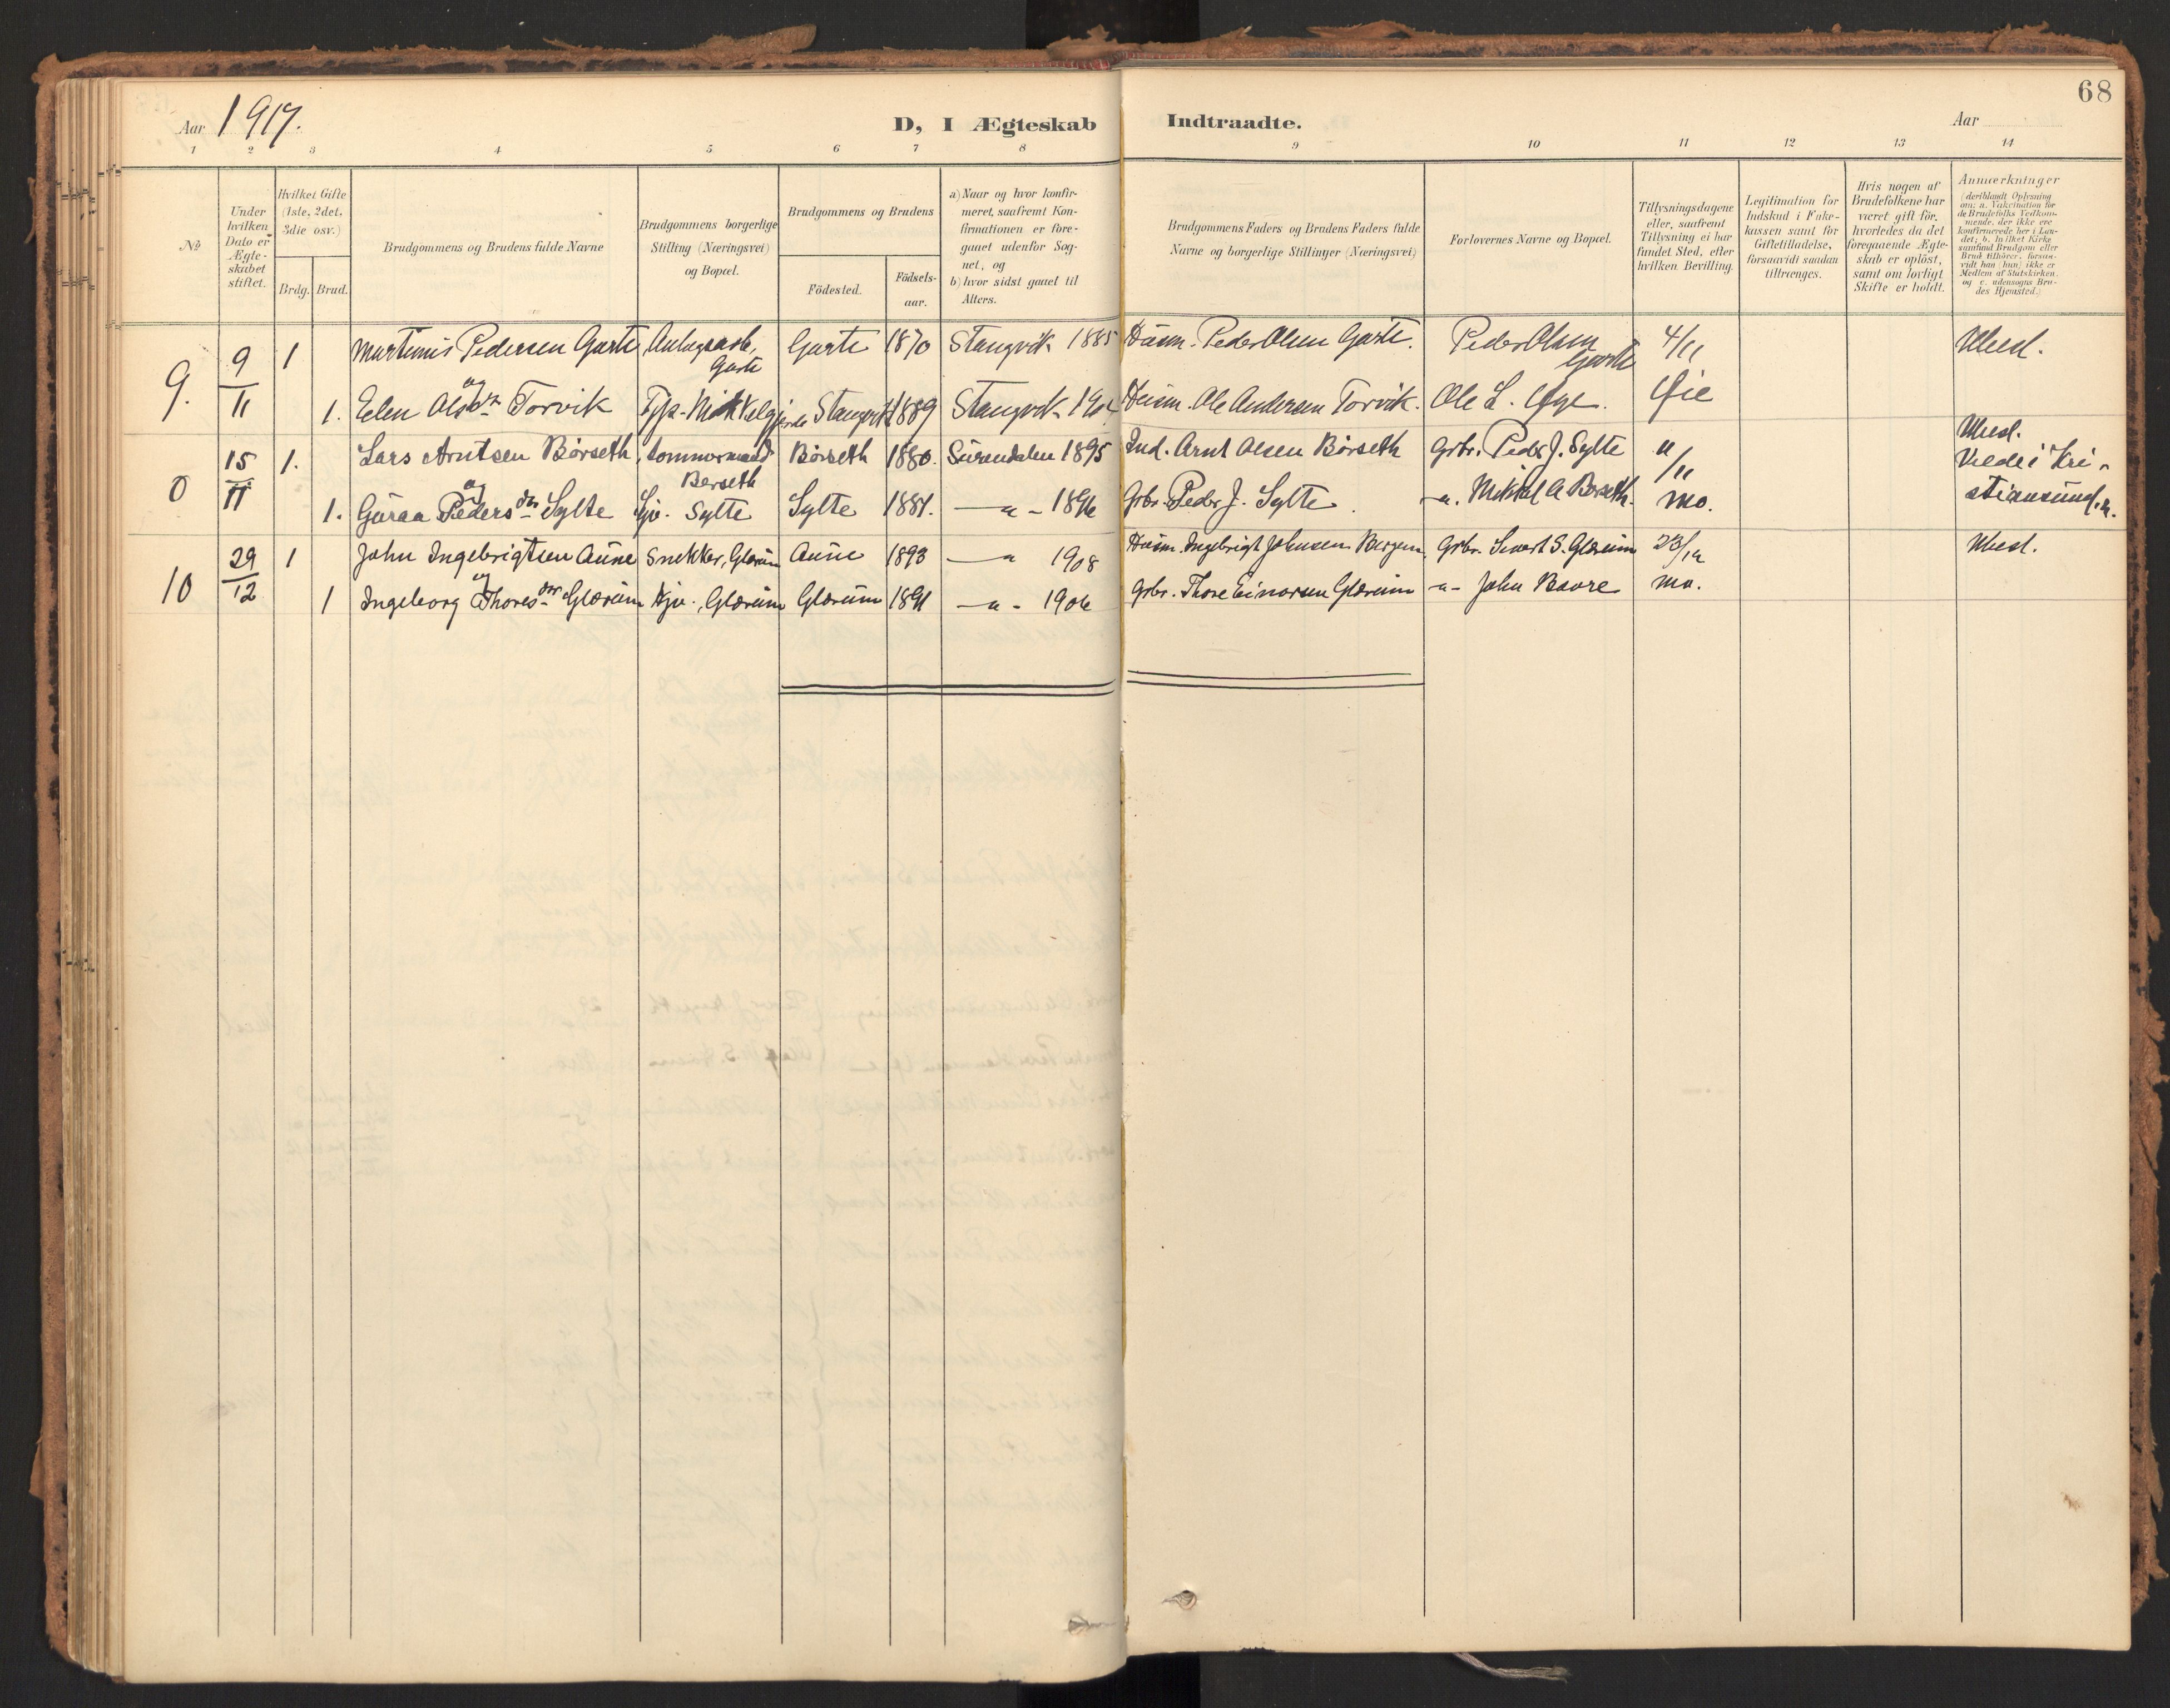 68
Aar 1917.
D, I Ægteskab Indtraadte.
Aar
1 2 3 4 5 6 7 8 9 10 11 12 13 14
№
Under
hvilken
Dato er
Ægte-
skabet
stiftet.
Hvilket Gifte
(1ste, 2det,
3die osv.)
Brdg. Brud.
Brudgommens og Brudens fulde Navne
Brudgommens borgerlige
Stilling (Næringsvei)
og Bopæl.
Brudgommens og Brudens
Födested.
Födsels-
aar.
a) Naar og hvor konfir-
meret, saafremt Kon-
firmationen er fore-
gaaet udenfor Sog-
net, og
b) hvor sidst gaaet til
Alters.
Brudgommens Faders og Brudens Faders fulde
Navne og borgerlige Stillinger (Næringsvei)
Forlovernes Navne og Bopæl.
Tillysningsdagene
eller, saafremt
Tillysning ei har
fundet Sted, efter
hvilken Bevilling.
Legitimation for
Indskud i Enke-
kassen samt for
Giftetilladelse,
forsaavidt saadan
tiltrænges.
Hvis nogen af
Brudefolkene har
været gift för,
hvorledes da det
foregaaende Ægte-
skab er oplöst,
samt om lovligt
Skifte er holdt.
Anmærkninger
(deriblandt Oplysning
om: a. Vakcination for
de Brudefolks Vedkom-
mende, der ikke ere
konfirmerede her i Lan-
det; b. hvilket Kirke
samfund Brudgom eller
Brud tilhörer, forsaa-
vidt han (hun) ikke er
Medlem af Statskirken,
og c. udensogns Bru-
des Hjemsted.)
9. 9/11 1 Martinus Pedersen Garte Garte Garte 1870 Stangvik 1885 Husm. Peder Olsen Garte. Peder Olsen Garte 4/11
og
1. Elen Olsdtr Torvik Stangvik 1889 Stangvik Husm. Ole Andersen Torvik. Ole L. Øye. Øie
0 15/11 1. Lars Arntsen Börseth, tommermand Berseth Börseth 1880. Surendalen 1895 Ind. Arnt Olsen Börseth Grbr. Peder J. Sylte 11/11
og
1. Guraa Pedersdtr Sylte Sylte Sylte 1881. —"— 1896 Grbr. Peder J. Sylte. —"— Mikkel A Berseth. Mo.
Viede i Kri-
stiansund.n.
10 29/12 1 John Ingebrigtsen Aune Snekker, Glærum Aune 1893 —"— 1908 Husm. Ingebrigt Johnsen Bergem Grbr. Sivert S. Glærum 23/12
og
1 Ingeborg Thoresdtr Glærum Glærum Glærum 1891 —"— 1906 Grbr. Thore Einarsen Glærum —"— John Bævre Mo.